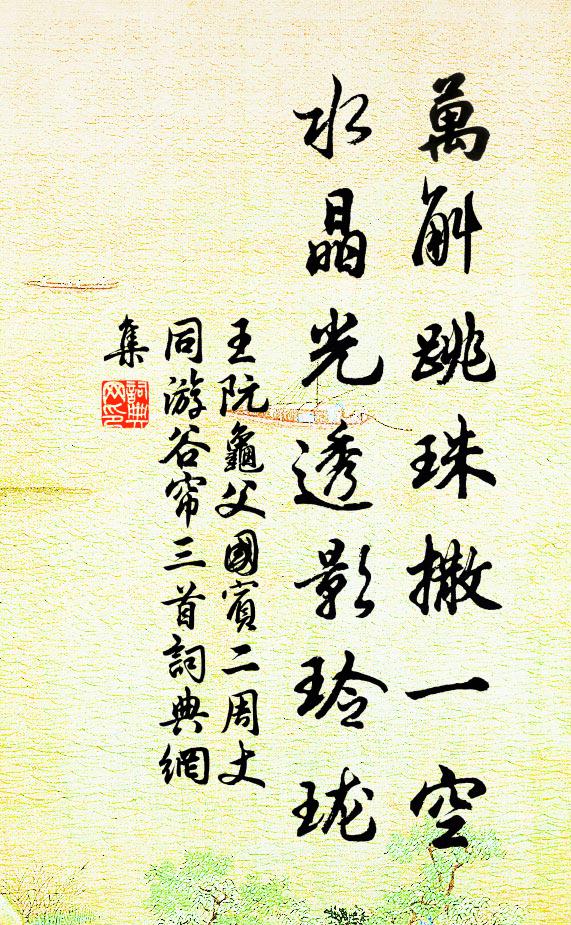 萬斛跳珠撒一空
水晶光透影玲珑
王阮龜父國賓二周丈
同游谷帘三首詞典網
集
詞典
网